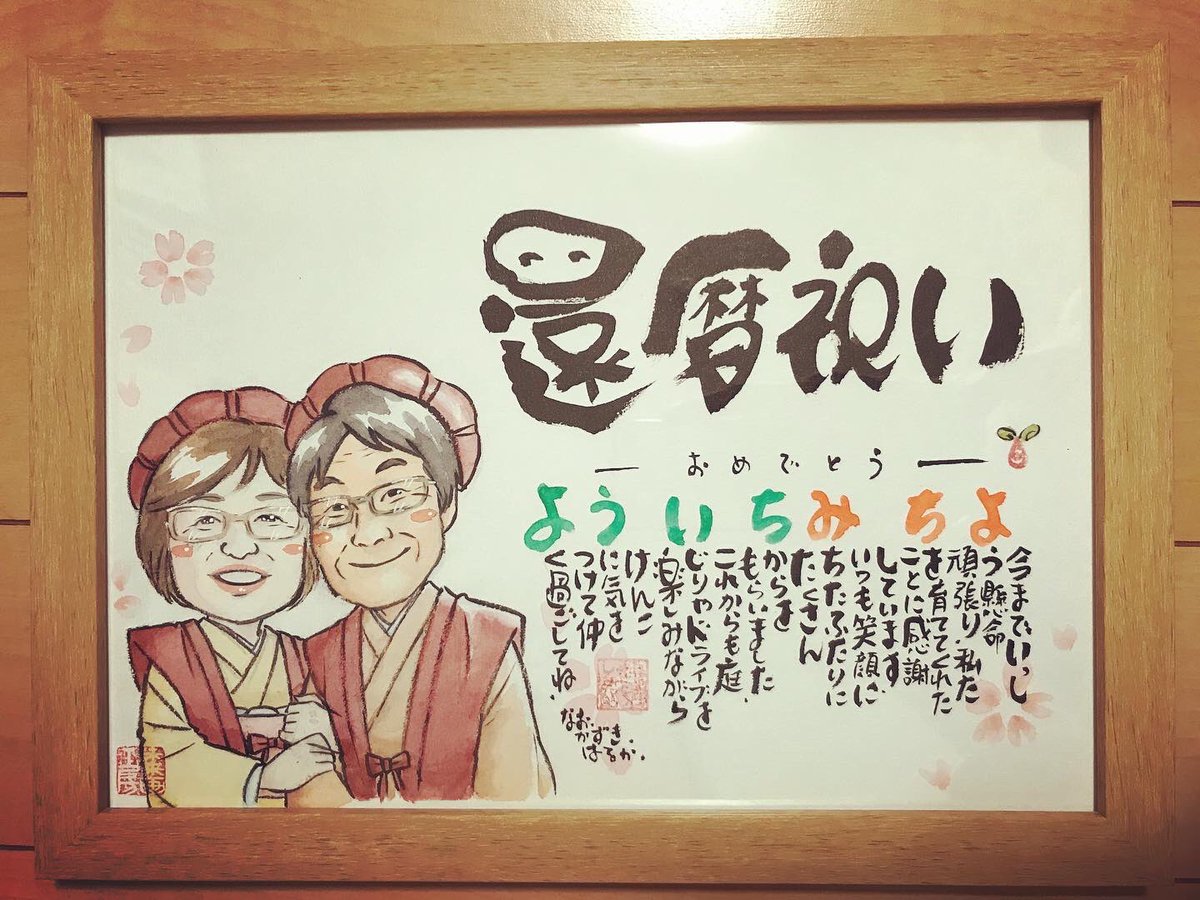 還暦祝い
ー おめでとう ー
よういちみちよ
今までいっし
う懸命
頑張り、私た
を育ててくれた
ことに感謝
しています。
いつも笑顔に
ちたふたりに
たくさん
からを
もらいました
これからも庭、
じりやドライブを
楽しみながら
けんこ
に気を
つけて仲
く過ごしてね。